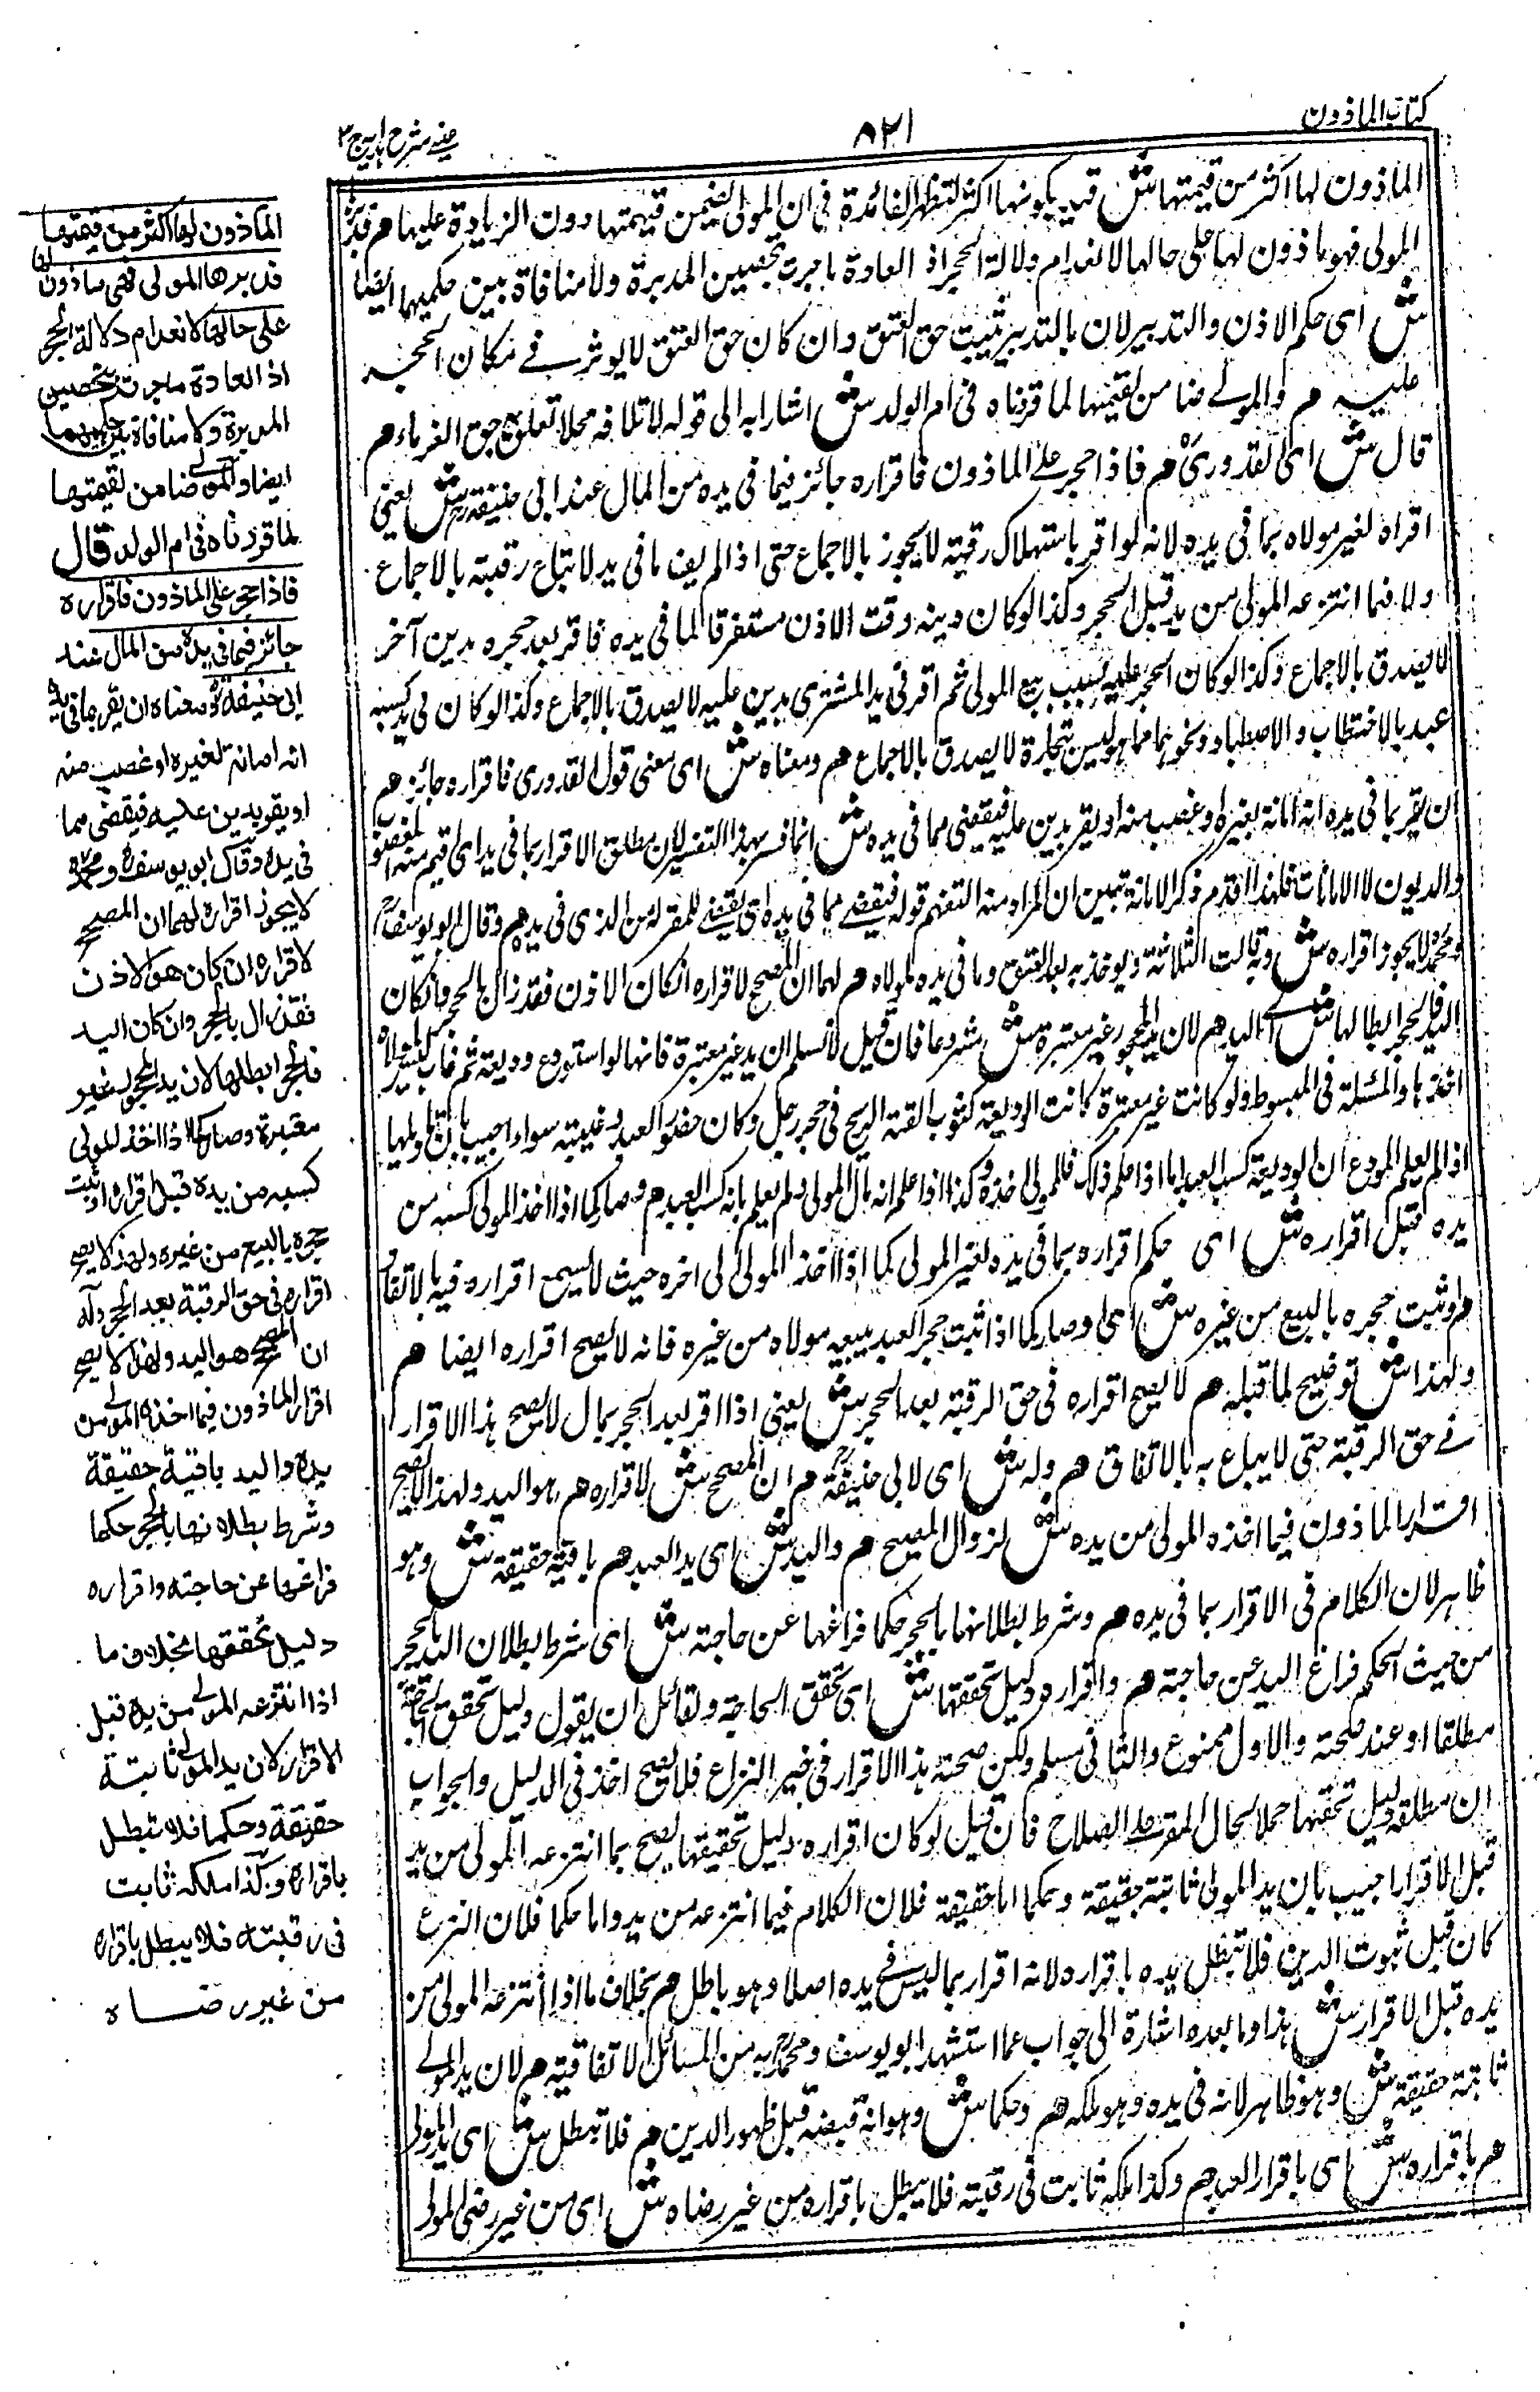 كتاب الماذون
٨٢١
عینی شرح ہدایہ ج ٣
الماذون لها اكثر من قيمتها ش قيد بكونها اكثر لتظهر الفائدة فى ان المولى يضمن قيمتها دون الزيادة عليها م فدبرها
المولى فهو ماذون لها على حالها لانعدام دلالة الحجر اذ العادة ما جرت بتحصين المدبرة ولا منافاة بين حكميهما ايضا
ش اى حكم الاذن والتدبير لان بالتدبير تثبت حق العتق وان كان حق العتق لا يوثر فے مكان الحجر
عليه م والمولے ضامن لقيمتها لما قررناه فى ام الولد ش اشار به الى قوله لاتلافه محلا تعلق به حق الغرماء م
قال ش اى القدورى م فاذا حجر على الماذون فاقراره جائز فيما فى يده من المال عند ابى حنيفة ش يعنى
اقراره لغير مولاه بما فى يده لانه لو اقر باستهلاك رقبته لا يجوز بالاجماع حتى اذا لم يف ما فى يده لا تباع رقبته بالاجماع
ولا فيما انتزعه المولى من يده قبل الحجر وكذا لو كان دينه وقت الاذن مستغرقا لما فى يده فاقر بعد حجره بدين آخر
لا يصدق بالاجماع وكذا لو كان الحجر عليه بسبب بيع المولى ثم اقر فى يد المشترى بدين عليه لا يصدق بالاجماع وكذا لو كان فى يده كسبه
عبد بالاحتطاب والاصطياد ونحوهما مما هو ليس بتجارة لا يصدق بالاجماع م ومعناه ش اى معنى قول القدورى فاقراره جائز م
ان يقر بما فى يده انه امانة لغيره او غصب منه او يقر بدين عليه فيقضى مما فى يده ش انما فسر بهذا التفسير لان مطلق الاقرار بما فى يده اى قيم منه المغصوب
والديون لا الامانات فلهذا قدم ذكر الامانة تبين ان المراد منه التعميم قوله فيقضے مما فى يده اى يقضے للمقر له من الذى فى يده م وقال ابو يوسف
ومحمد لا يجوز اقراره ش وبه قالت الثلاثة ويوخذ به بعد العتق وما فى يده لمولاه م لهما ان المصحح لاقراره ان كان الاذن فقد زال بالحجر وان كان
اليد فالحجر ابطالها ش اى اليد م لان يد المحجور غير معتبرة ش شرعا فان قيل لا نسلم ان يده غير معتبرة فانها لو استودع وديعة ثم غاب ليس للمولى
اخذها والمسئلة فى المبسوط ولو كانت غير معتبرة كانت الوديعة كثوب القته الريح فى حجر رجل وكان حضور العبد وغيبته سواء اجيب بان تاويلها
اذا لم يعلم المودع ان الوديعة كسب العبد اما اذا علم ذلك فللمولى اخذه وكذا اذا علم انه مال المولى ولم يعلم بانه كسب العبد م وصار كما اذا اخذ المولى كسبه من
يده قبل اقراره ش اى حكم اقراره بما فى يده لغير المولى كما اذا اخذ المولى الى اخره حيث لا يسمع اقراره فيه بالاتفاق
م وثبت حجره بالبيع من غيره ش اى وصار كما اذا ثبت حجر العبد ببيعه مولاه من غيره فانه لا يصح اقراره ايضا م
ولهذا ش توضيح لما قبله م لا يصح اقراره فى حق الرقبة بعد الحجر ش يعنى اذا اقر بعد الحجر بمال لا يصح هذا الاقرار
فے حق الرقبة حتى لا يباع به بالاتفاق م وله ش اى لابى حنيفة م ان المصحح ش لاقراره م هو اليد ولهذا لا يصح
اقرار الماذون فيما اخذه المولى من يده ش لزوال المصحح م واليد ش اى يد العبد م باقية حقيقة ش وهو
ظاهر لان الكلام فى الاقرار بما فى يده م وشرط بطلانها بالحجر حكما فراغها عن حاجته ش اى شرط بطلان اليد بالحجر
من حيث الحكم فراغ اليد عن حاجته م واقراره دليل تحققها ش اى تحقق الحاجة ولقائل ان يقول دليل تحقق الحاجة
مطلقا او عند صحته والاول ممنوع والثانى مسلم ولكن صحة هذا الاقرار فى حيز النزاع فلا يصح اخذه فى الدليل والجواب
ان مطلقه دليل تحققها حملا لحال المقر على الصلاح فان قيل لو كان اقراره دليل تحقيقها يصح بما انتزعه المولى من يده
قبل الاقرار اجيب بان يد المولى ثابتة حقيقة وحكما اما حقيقة فلان الكلام فيما انتزعه من يده واما حكما فلان النزع
كان قبل ثبوت الدين فلا تبطل يده باقراره لانه اقرار بما ليس فے يده اصلا وهو باطل م بخلاف ما اذا انتزعه المولى من
يده قبل الاقرار ش هذا وما بعده اشارة الى جواب عما استشهد ابو يوسف ومحمد به من المسائل الاتفاقية م لان يد المولے
ثابتة حقيقة ش وهو ظاهر لانه فى يده وهو ملكه م وحكما ش وهو انه قبضه قبل ظهور الدين م فلا تبطل ش اى يد المولى
م باقراره ش اى باقرار العبد م وكذا ملكه ثابت فى رقبته فلا يبطل باقراره من غير رضاه ش اى من غير رضى المولى
الماذون لها اكثر من قيمتها
فدبرها المولى فهى ماذون لها
على حالها لانعدام دلالة الحجر
اذ العادة ما جرت بتحصين
المدبرة ولا منافاة بين حكميهما
ايضا والمولے ضامن لقيمتها
لما قررناه فى ام الولد قال
فاذا حجر على الماذون فاقراره
جائز فيما فى يده من المال عند
ابى حنيفة ومعناه ان يقر بما فى يده
انه امانة لغيره او غصب منه
او يقر بدين عليه فيقضى مما
فى يده وقال ابو يوسف ومحمد
لا يجوز اقراره لهما ان المصحح
لاقراره ان كان هو الاذن
فقد زال بالحجر وان كان اليد
فالحجر ابطلها لان يد المحجور غير
معتبرة وصار كما اذا اخذ المولى
كسبه من يده قبل اقراره او ثبت
حجره بالبيع من غيره ولهذا لا يصح
اقراره فى حق الرقبة بعد الحجر وله
ان المصحح هو اليد ولهذا لا يصح
اقرار الماذون فيما اخذه المولے من
يده واليد باقية حقيقة
وشرط بطلانها بالحجر حكما
فراغها عن حاجته واقراره
دليل تحققها بخلاف ما
اذا انتزعه المولے من يده قبل
الاقرار لان يد المولے ثابتة
حقيقة وحكما فلا تبطل
باقراره وكذا ملكه ثابت
فى رقبته فلا يبطل باقراره
من غير رضاه